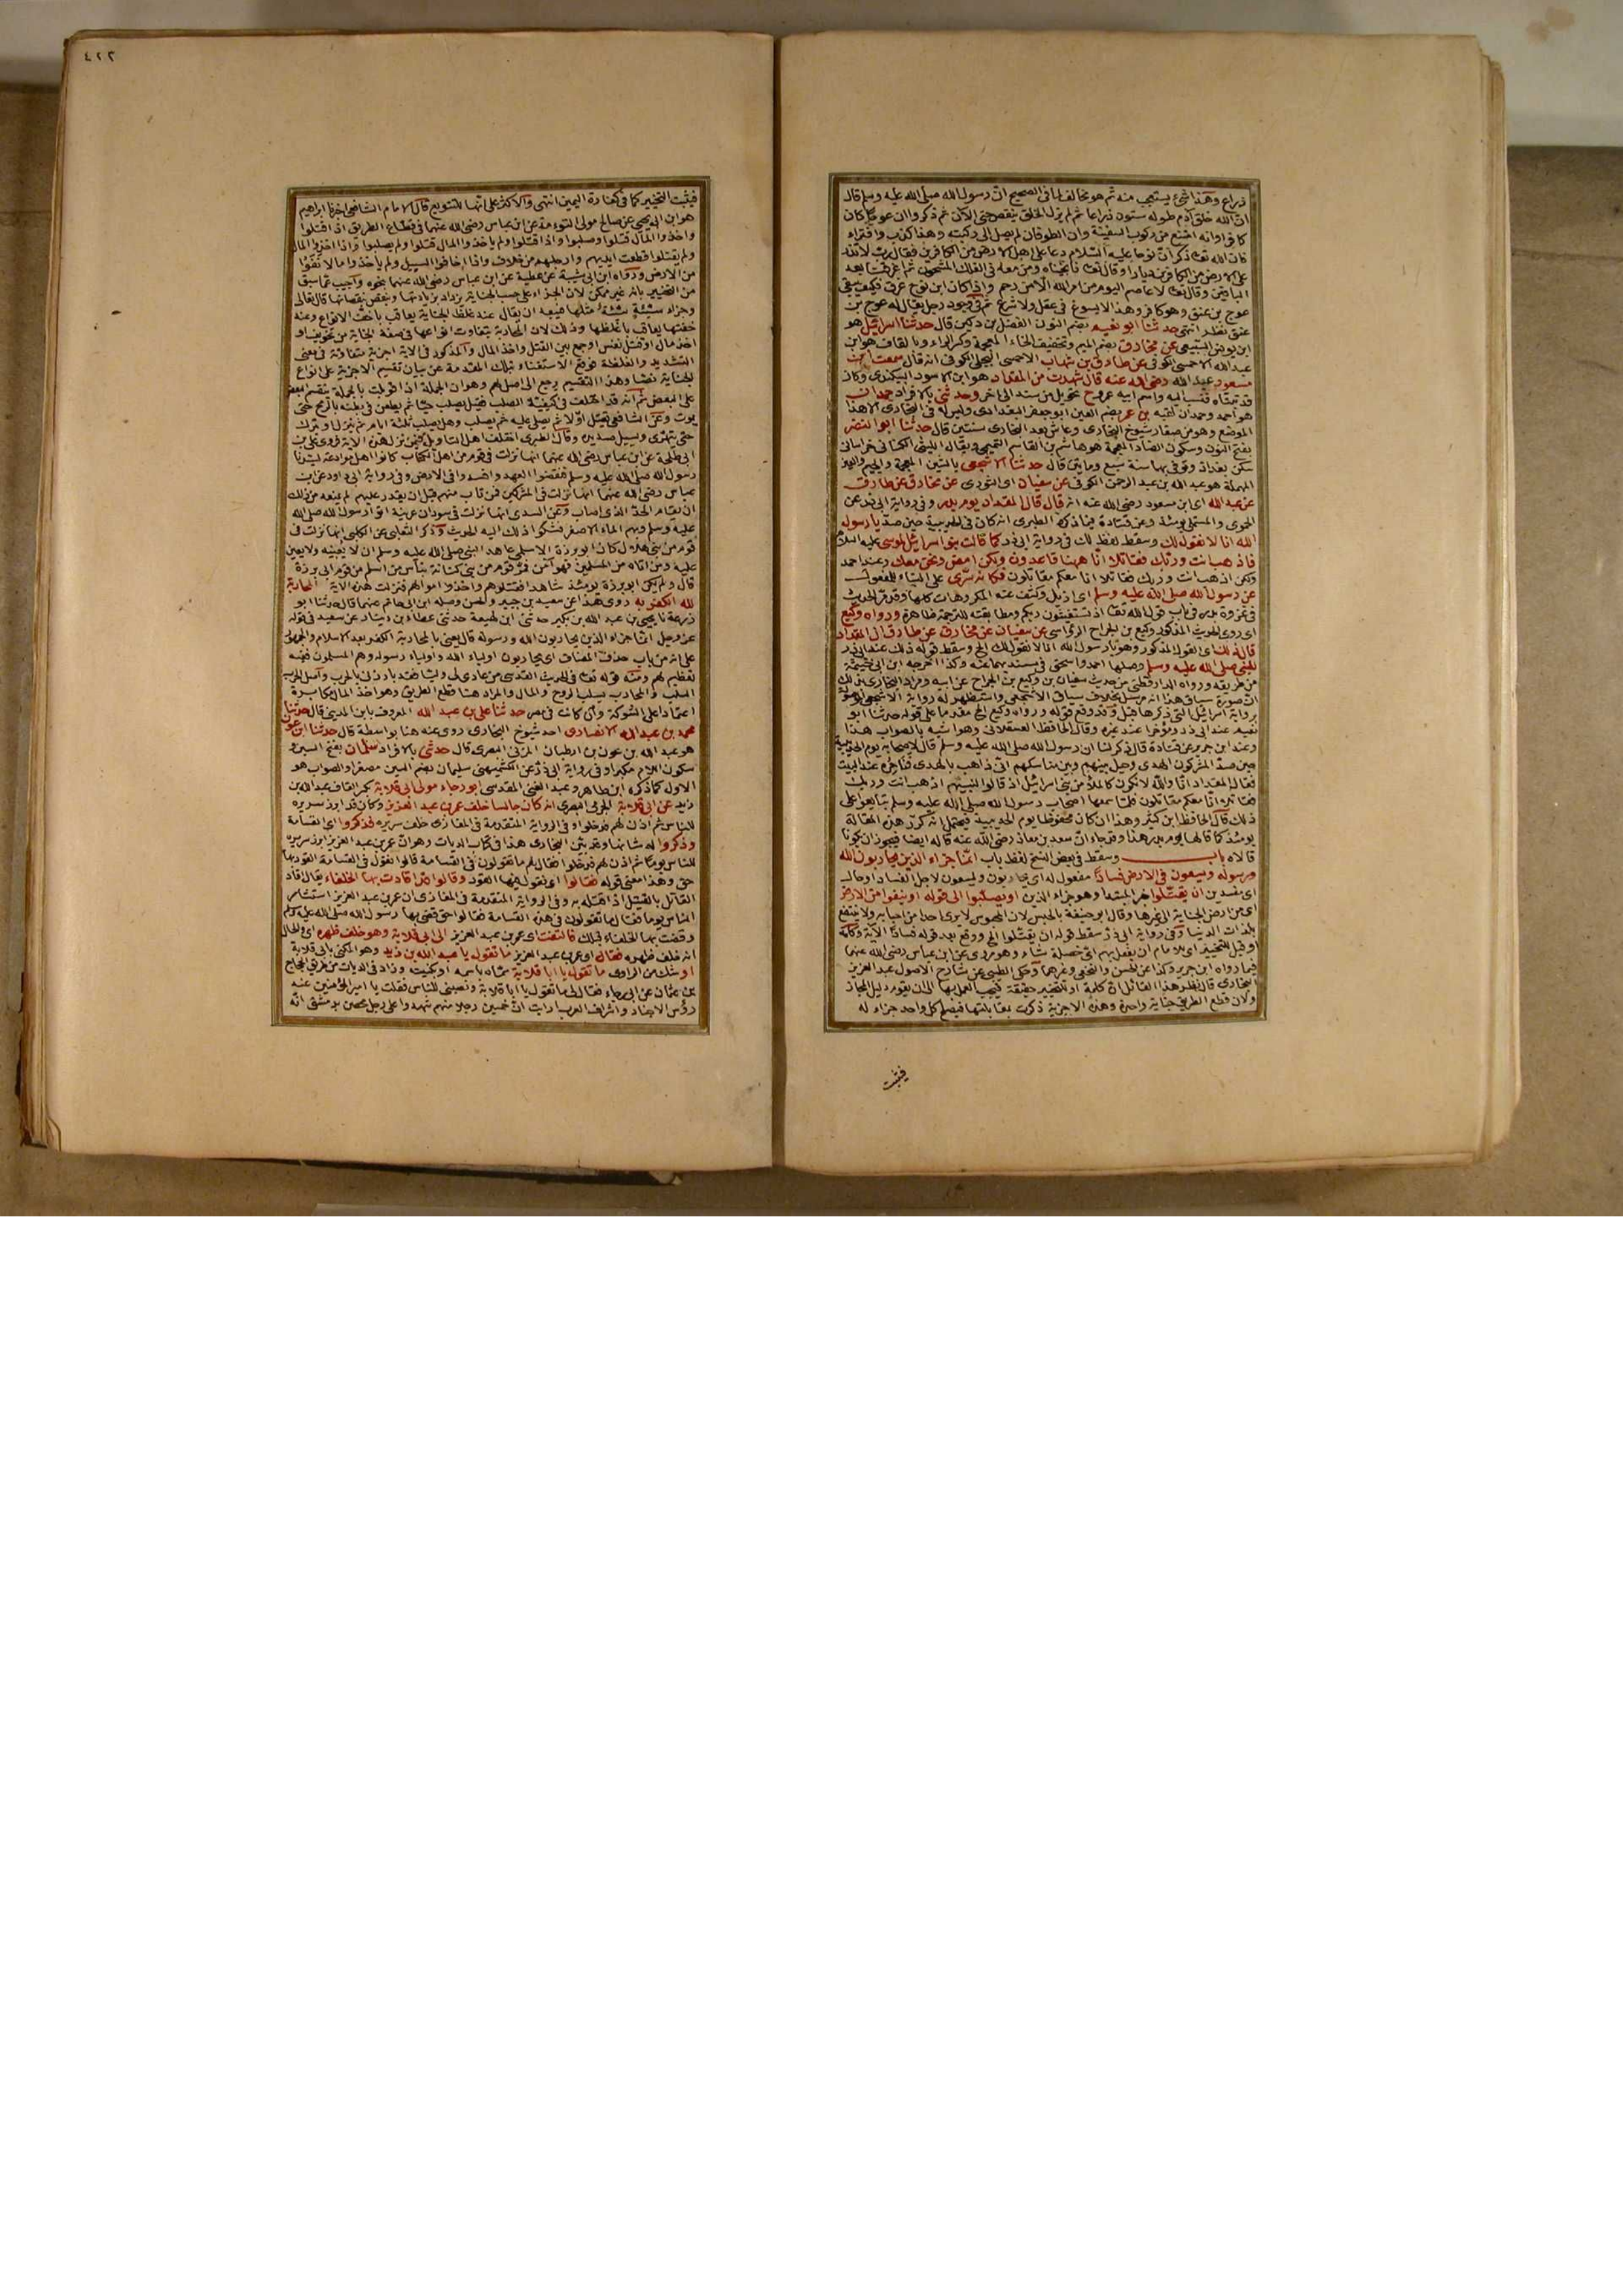 ذراع وهذا شئ يستحيى منه ثم هو مخالف لما فى الصحيح ان رسول الله صلى الله عليه وسلم قال
ان الله خلق آدم طوله ستون ذراعا ثم لم يزل الخلق ينقص حتى الآن ثم ذكروا ان عوجا كان
كافرا وانه امتنع من ركوب السفينة وان الطوفان لم يصل الى ركبته وهذا كذب وافتراء
فان الله تعا ذكر ان نوحا عليه السلام دعا على اهل الارض من الكافرين فقال رب لا تذر
على الارض من الكافرين ديارا وقال تعا فانجيناه ومن معه فى الفلك المشحون ثم اغرقنا بعد
الباقين وقال تعا لا عاصم اليوم من امر الله الا من رحم واذا كان ابن نوح غرق فكيف يبقى
عوج بن عنق وهو كافر وهذا لا يسوغ فى عقل ولا شرع ثم فى وجود رجل يقال له عوج بن
عنق نظر انتهى حدثنا ابو نعيم بضم النون الفضل بن دكين قال حدثنا اسرائيل هو
ابن يونس السبيعى عن مخارق بضم الميم وتخفيف الخاء المعجمة وكسر الراء وبالقاف هو ابن
عبد الله الاحمسى الكوفى عن طارق بن شهاب الاحمسى البجلى الكوفى انه قال سمعت ابن
مسعود عبد الله رضى الله عنه قال شهدت من المقداد هو ابن الاسود الكندى وكان
قد تبناه فنسب اليه واسم ابيه عمرو ح تحويل من سند الى اخر وحدثنى بالافراد حمدان
هو احمد وحمدان لقبه بن عمر بضم العين ابو جعفر البغدادى وليس له فى البخارى الا هذا
الموضع وهو من صغار شيوخ البخارى وعاش بعد البخارى سنتين قال حدثنا ابو النضر
بفتح النون وسكون الضاد المعجمة هو هاشم بن القاسم التميمى ويقال الليثى الكنانى خراسانى
سكن بغداد وتوفى بها سنة سبع ومايتين قال حدثنا الاشجعى بالشين المعجمة والجيم والعين
المهملة هو عبيد الله بن عبد الرحمن الكوفى عن سفيان اى الثورى عن مخارق عن طارق
عن عبد الله اى ابن مسعود رضى الله عنه انه قال قال المقداد يوم بدر وفى رواية ابى ذر عن
الحموى والمستملى يومئذ وعن قتادة فيما ذكره الطبرى انه كان فى الحديبية حين صد يا رسول
الله انا لا نقول لك وسقط لفظ لك فى رواية ابى ذر كما قالت بنو اسرائيل لموسى عليه السلام
فاذهب انت وربك فقاتلا انا ههنا قاعدون ولكن امض ونحن معك وعند احمد
ولكن اذهب انت وربك فقاتلا انا معكم مقاتلون فكانه سرى على البناء للمفعول
عن رسول الله صلى الله عليه وسلم اى ازيل وكشف عنه المكروهات كلها وقد مر الحديث
فى غزوة بدر فى باب قول الله تعا اذ تستغيثون ربكم ومطابقته للترجمة ظاهرة ورواه وكيع
اى روى الحديث المذكور وكيع بن الجراح الرؤاسى عن سفيان عن مخارق عن طارق ان المقداد
قال ذلك اى القول المذكور وهو يا رسول الله انا لا نقول لك الخ وسقط قوله ذلك عند ابى ذر
للنبى صلى الله عليه وسلم وصلها احمد واسحق فى مسنديهما عنه وكذا اخرجه ابن ابى خيثمة
من طريقه ورواه الدارقطنى من حديث سفيان بن وكيع بن الجراح عن ابيه ومراد البخارى من ذلك
ان صورة سياق هذا انه مرسل بخلاف سياق الاشجعى واستظهر له رواية الاشجعى الموصولة
برواية اسرائيل التى ذكرها قبل وقد وقع قوله ورواه وكيع الخ مقدما على قوله حدثنا ابو
نعيم عند ابى ذر ومؤخرا عند غيره وقال الحافظ العسقلانى وهو اشبه بالصواب هذا
وعند ابن جرير عن قتادة قال ذكر لنا ان رسول الله صلى الله عليه وسلم قال لاصحابه يوم الحديبية
حين صد المشركون الهدى وحيل بينهم وبين مناسكهم انى ذاهب بالهدى فناحره عند البيت
فقال المقداد انا والله لا نكون كالملأ من بنى اسرائيل اذ قالوا لنبيهم اذهب انت وربك
فقاتلا انا معكم مقاتلون فلما سمعها اصحاب رسول الله صلى الله عليه وسلم تتابعوا على
ذلك قال الحافظ ابن كثير وهذا ان كان محفوظا يوم الحديبية فيحتمل انه كرر هذه المقالة
يومئذ كما قالها يوم بدر هذا وقد جاء ان سعد بن معاذ رضى الله عنه قاله ايضا فيجوز ان يكونا
قالاه باب وسقط فى بعض النسخ لفظ باب انما جزاء الذين يحاربون الله
ورسوله ويسعون فى الارض فسادا مفعول له اى يحاربون ويسعون لاجل الفساد او حال
اى مفسدين ان يقتلوا خبر المبتدا وهو جزاء الذين او يصلبوا الى قوله او ينفوا من الارض
اى من ارض الجناية الى غيرها وقال ابو حنيفة بالحبس لان المحبوس لا يرى احدا من احبابه ولا ينتفع
بلذات الدنيا وفى رواية ابى ذر سقط قوله ان يقتلوا الخ ووقع بعد قوله فسادا الآية وكلمة
او قيل للتخيير اى للامام ان يفعل بهم اى خصلة شاء وهو مروى عن ابن عباس رضى الله عنهما
فيما رواه ابن جرير وكذا عن الحسن والنخعى وغيرهما وحكى الطيبى عن شارح الاصول عبد العزيز
البخارى قال نظر هذا القائل ان كلمة او للتخيير حقيقة فيجب العمل بها الى ان يقوم دليل المجاز
ولان قطع الطريق جناية واحدة وهذه الاجزية ذكرت بمقابلتها فيصلح كل واحد جزاء له
فيثبت
٤٢٢
فيثبت التخيير كما فى كفارة اليمين انتهى والاكثر على انها للتنويع قال الامام الشافعى اخبرنا ابراهيم
هو ابن ابى يحيى عن صالح مولى التوءمة عن ابن عباس رضى الله عنهما فى قطاع الطريق اذا قتلوا
واخذوا المال قتلوا وصلبوا واذا قتلوا ولم ياخذوا المال قتلوا ولم يصلبوا واذا اخذوا المال
ولم يقتلوا قطعت ايديهم وارجلهم من خلاف واذا اخافوا السبيل ولم ياخذوا مالا نفوا
من الارض ورواه ابن ابى شيبة عن عطية عن ابن عباس رضى الله عنهما بنحوه واجيب عما سبق
من التخيير بانه غير ممكن لان الجزاء على حسب الجناية يزداد بزيادتها وينقص بنقصانها قال تعالى
وجزاء سيئة سيئة مثلها فيبعد ان يقال عند غلظ الجناية يعاقب باخف الانواع وعند
خفتها يعاقب باغلظها وذلك لان المحاربة يتفاوت انواعها فى صفة الجناية من تخويف او
اخذ مال او قتل نفس او جمع بين القتل واخذ المال والمذكور فى الآية اجزية متفاوتة فى معنى
التشديد والغلظة فوقع الاستغناء بتلك المقدمة عن بيان تقسيم الاجزية على انواع
الجناية نصا وهذا التقسيم يرجع الى اصل لهم وهو ان الجملة اذا قوبلت بالجملة ينقسم البعض
على البعض ثم انه قد اختلف فى كيفية الصلب فقيل يصلب حيا ثم يطعن فى بطنه بالرمح حتى
يموت وعن الشافعى يقتل اولا ثم يصلى عليه ثم يصلب وهل يصلب ثلثة ايام ثم ينزل او يترك
حتى يتهرى ويسيل صديده وقال الطبرى اختلف اهل التاويل فيمن نزل هذه الآية فروى على بن
ابى طلحة عن ابن عباس رضى الله عنهما انها نزلت فى قوم من اهل الكتاب كانوا اهل موادعة
رسول الله صلى الله عليه وسلم فنقضوا العهد وافسدوا فى الارض وفى رواية ابى داود عن ابن
عباس رضى الله عنهما انها نزلت فى المشركين فمن تاب منهم قبل ان يقدر عليهم لم يمنعه من ذلك
ان يقام الحد الذى اصاب وعن السدى انها نزلت فى سودان عرينة اتوا رسول الله صلى الله
عليه وسلم وبهم الماء الاصفر فشكوا ذلك اليه الحديث وذكر الثعلبى عن الكلبى انها نزلت فى
قوم من بنى هلال كان ابو برزة الاسلمى عاهد النبى صلى الله عليه وسلم ان لا يعينه ولا يعين
عليه ومن اتاه من المسلمين فهو آمن فمر قوم من بنى كنانة بناس من اسلم من قوم ابى برزة
قال ولم يكن ابو برزة يومئذ شاهدا فقتلوهم واخذوا اموالهم فنزلت هذه الآية المحاربة
لله الكفر به روى هذا عن سعيد بن جبير والحسن وصله ابن ابى حاتم عنهما قال حدثنا ابو
زرعة نا يحيى بن عبد الله بن بكير حدثنى ابن لهيعة حدثنى عطاء بن دينار عن سعيد فى قوله
عز وجل انما جزاء الذين يحاربون الله ورسوله قال يعنى بالمحاربة الكفر بعد الاسلام والجمهور
على انه من باب حذف المضاف اى يحاربون اولياء الله واولياء رسوله وهم المسلمون ففيه
تعظيم لهم ومنه قوله تعا فى الحديث القدسى من عادى لى وليا فقد بارزنى بالحرب واصل الحرب
السلب والمحارب يسلب الروح والمال والمراد هنا قطع الطريق وهو اخذ المال مكابرة
اعتمادا على الشوكة وان كانت فى مصر حدثنا على بن عبد الله المعروف بابن المدينى قال حدثنا
محمد بن عبد الله الانصارى احد شيوخ البخارى روى عنه هنا بواسطة قال حدثنا ابن عون
هو عبد الله بن عون بن ارطبان المزنى البصرى قال حدثنى بالافراد سلمان بفتح السين و
سكون اللام مكبرا وفى رواية ابى ذر عن الكشميهنى سليمان بضم السين مصغرا والصواب هو
الاول كما ذكره ابن طاهر وعبد الغنى المقدسى ابو رجاء مولى ابى قلابة بكسر القاف عبد الله بن
زيد عن ابى قلابة الجرمى البصرى انه كان جالسا خلف عمر بن عبد العزيز وكان قد ابرز سريره
للناس ثم اذن لهم فدخلوا وفى الرواية المتقدمة فى المغازى خلف سريره فذكروا اى القسامة
وذكروا له شانها وقد بين البخارى هذا فى كتاب الديات وهو ان عمر بن عبد العزيز ابرز سريره
للناس يوما ثم اذن لهم فدخلوا فقال لهم ما تقولون فى القسامة قالوا نقول فى القسامة القود بها
حق وهذا معنى قوله فقالوا اى نقول فيها القود وقالوا قد اقادت بها الخلفاء يقال اقاد
القاتل بالقتيل اذا قتله به وفى الرواية المتقدمة فى المغازى ان عمر بن عبد العزيز استشار
الناس يوما فقال ما تقولون فى هذه القسامة فقالوا حق قضى بها رسول الله صلى الله عليه وسلم
وقضت بها الخلفاء قبلك فالتفت اى عمر بن عبد العزيز الى ابى قلابة وهو خلف ظهره اى والحال
انه خلف ظهره فقال اى عمر بن عبد العزيز ما تقول يا عبد الله بن زيد وهو المكنى بابى قلابة
او شك من الراوى ما تقول يا ابا قلابة سماه باسمه او بكنيته وزاد فى الديات من طريق الحجاج
بن عثمان عن ابى رجاء فقال لى ما تقول يا ابا قلابة ونصبنى للناس فقلت يا امير المؤمنين عنده
رؤس الاجناد واشراف العرب ارايت ان خمسين رجلا منهم شهدوا على رجل محصن بدمشق انه